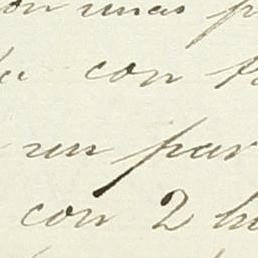 con unas p
con
un par
con 2 h